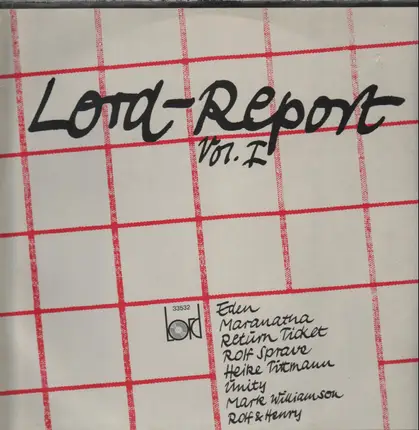 Lord-Report
Vol. I
33532
lord
Eden
Maranatha
Return Ticket
Rolf Sprave
Heike Tittmann
Unity
Mark Williamson
Rolf & Henry